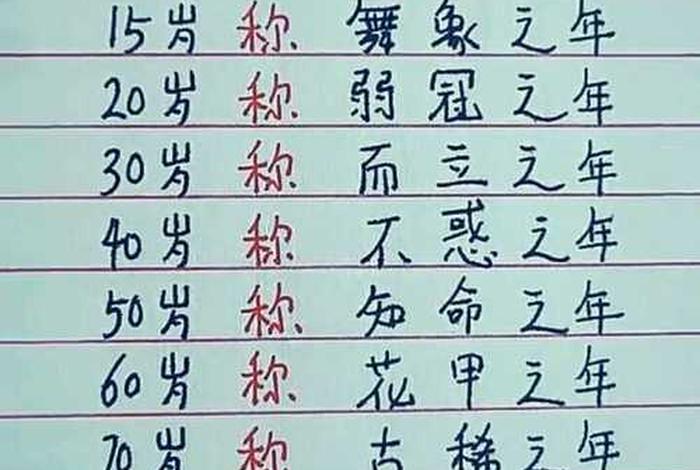 15岁 称 舞象之年
20岁 称 弱冠之年
30岁 称 而立之年
40岁 称 不惑之年
50岁 称 知命之年
60岁 称 花甲之年
70岁 称 古稀之年